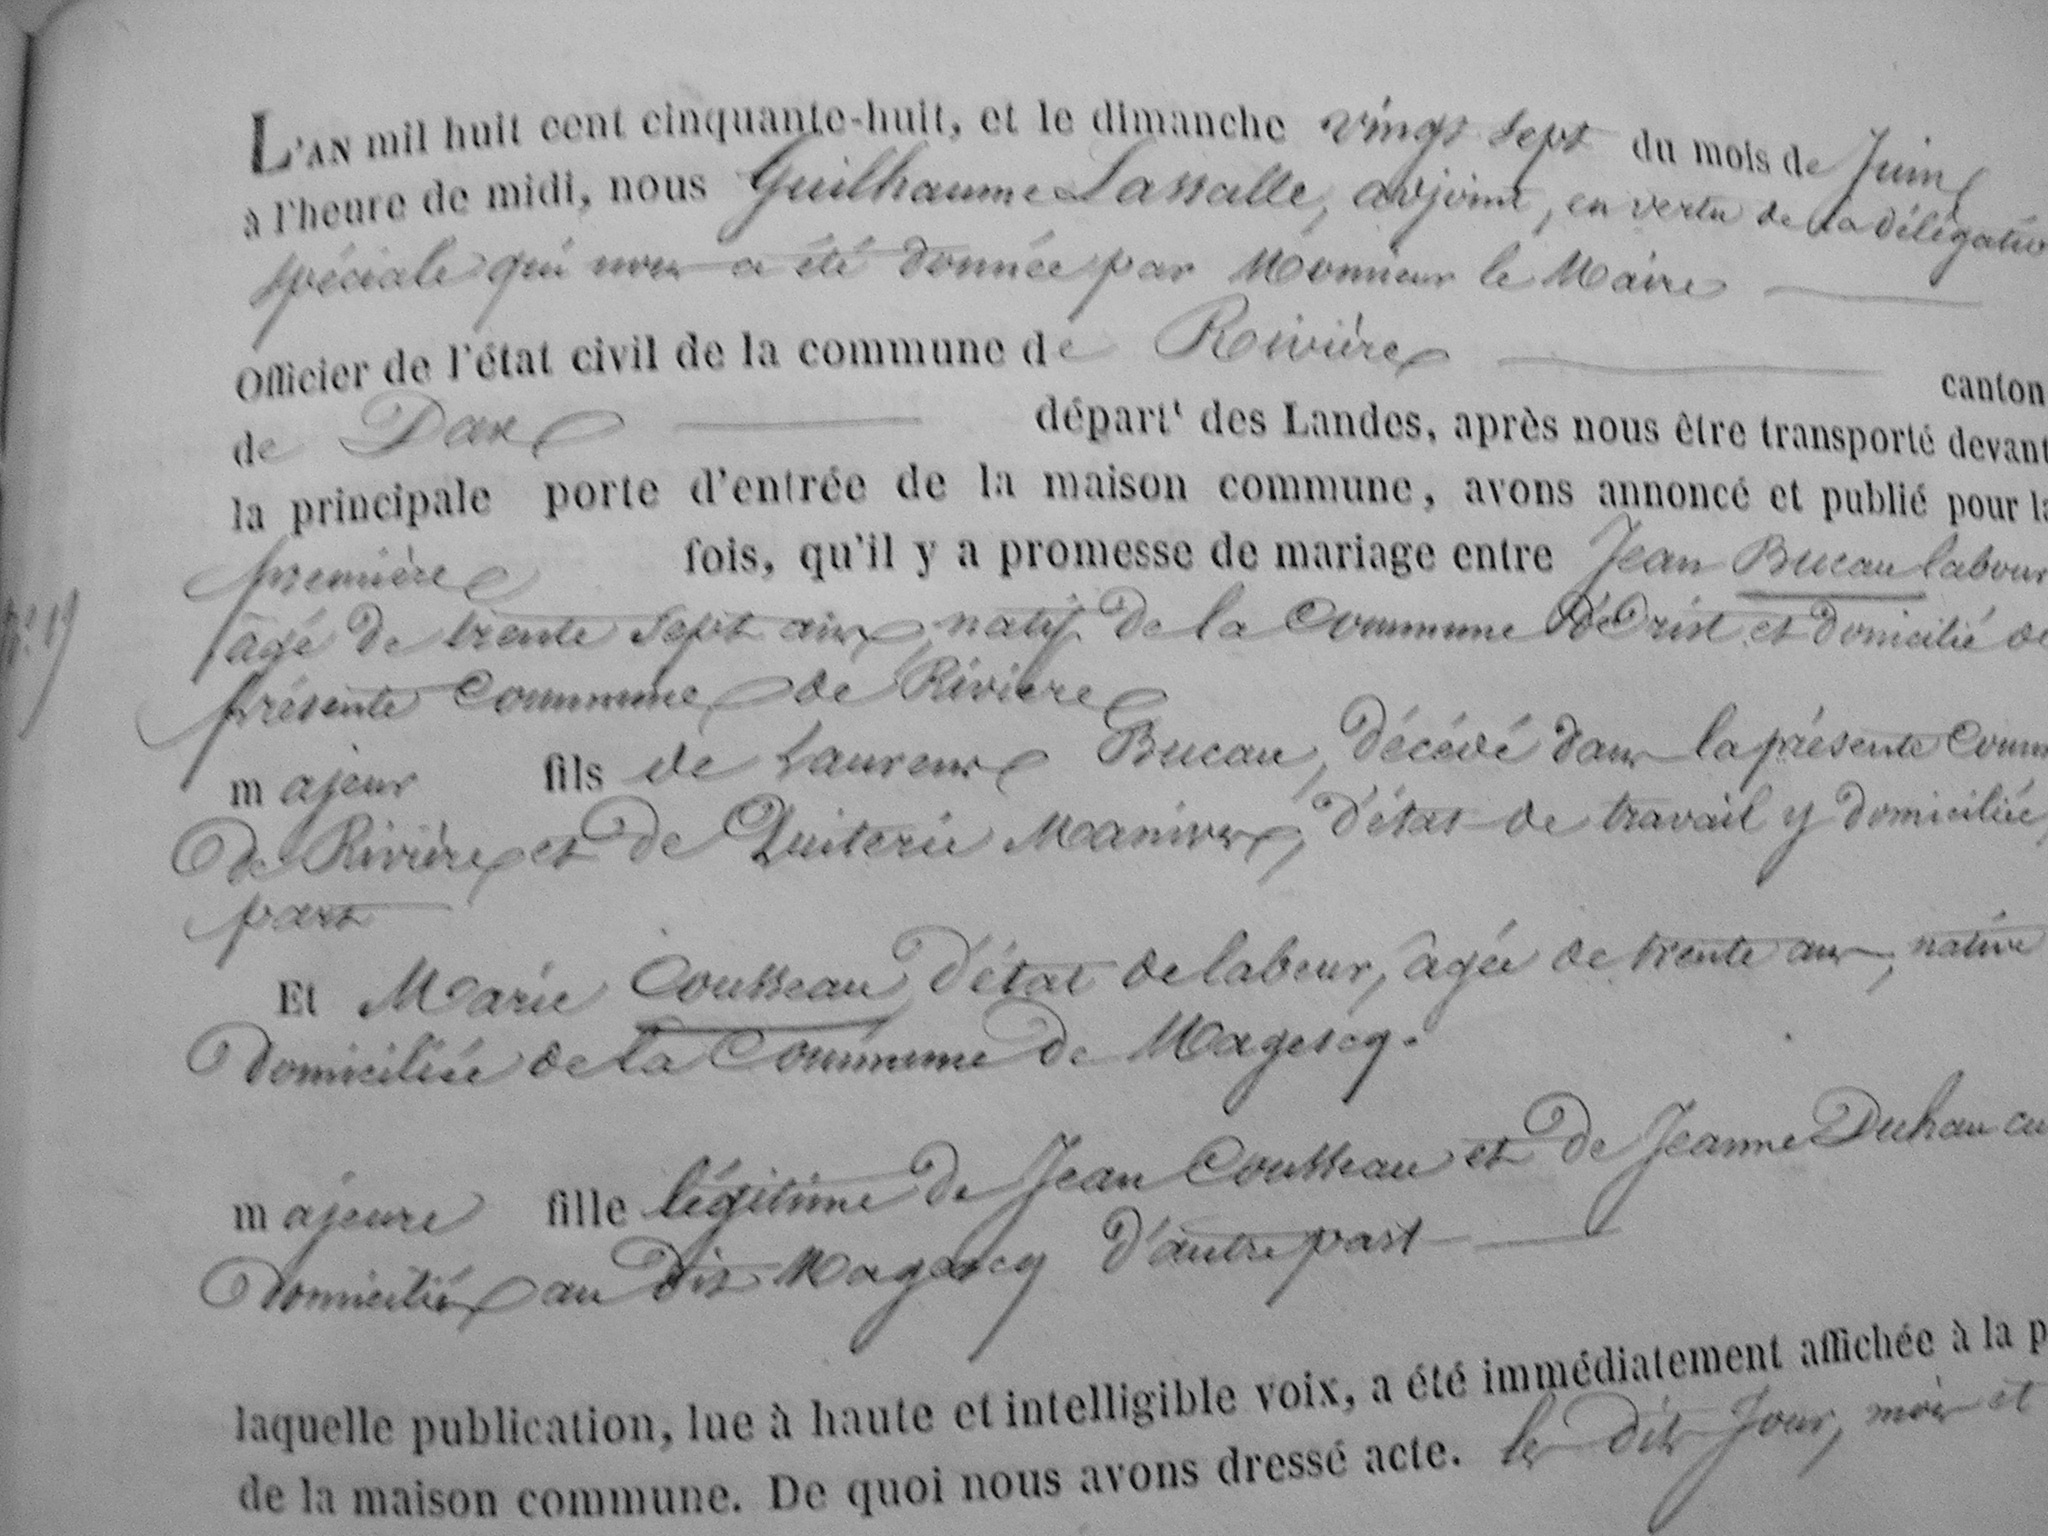 L'AN mil huit cent cinquante-huit, et le dimanche vingt sept du mois de Juin
à l'heure de midi, nous Guilhaume Lassalle, adjoint, en vertu de la délégatio
spéciale qui nous a été donnée par Monsieur le Maire
Officier de l'état civil de la commune de Rivière canton
de Dax départt des Landes, après nous être transporté devant
la principale porte d'entrée de la maison commune, avons annoncé et publié pour la
première fois, qu'il y a promesse de mariage entre Jean Bucau labour
âgé de trente sept ans, natif de la Commune d'Orist et domicilié de
présente Commune de Rivière
majeur fils de Laurens Bucau, décédé dans la présente Comm
de Rivière et de Quiterie d'état de travail y domiciliée,
part
Et Marie Cousseau d'état de labeur, âgée de trente ans, native
domiciliée de la Commune de Magescq.
majeure fille légitime de Jean Cousseau et de Jeanne
domiciliés au dit Magescq d'autre part
laquelle publication, lue à haute et intelligible voix, a été immédiatement affichée à la p
de la maison commune. De quoi nous avons dressé acte. les dits Jour, mois et